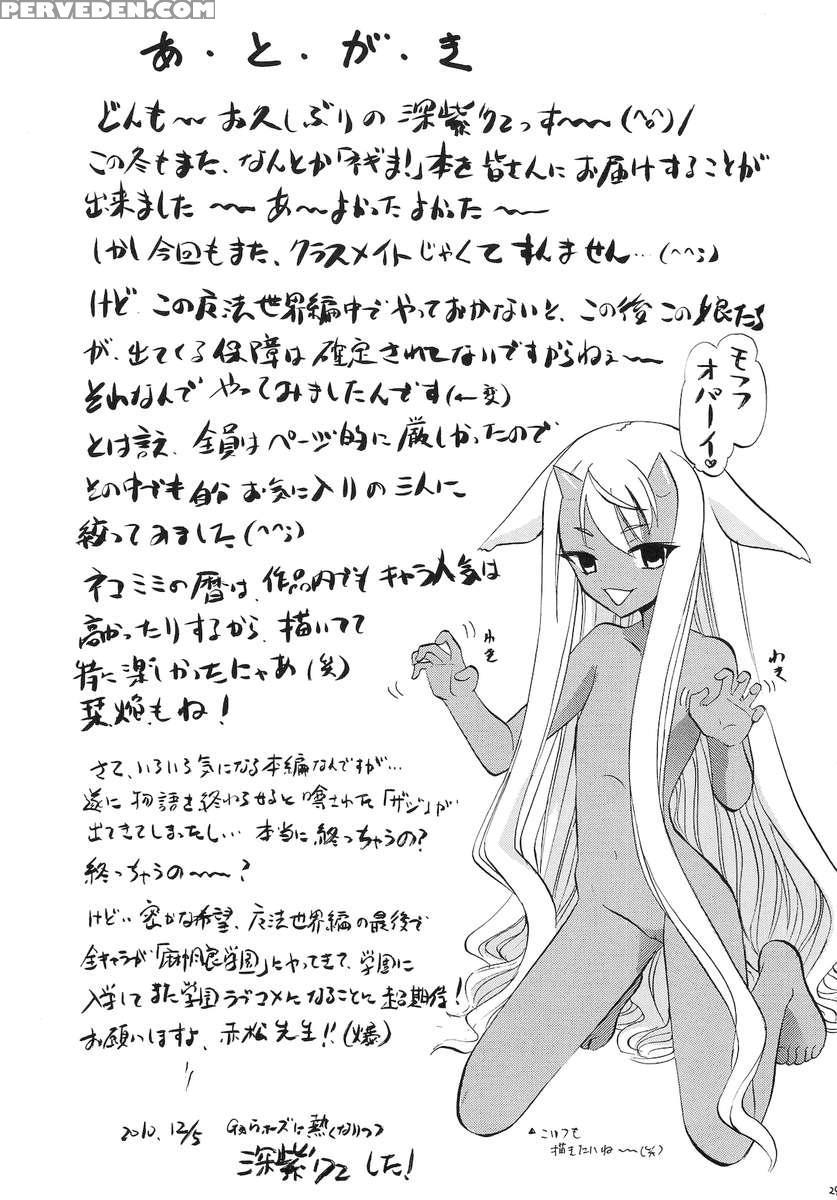 PERVEDEN.COM
あ・と・が・き
どんも～～お久しぶりの深紫クでっす～～(^o^)/
この冬もまた、なんとか「ネギま!」本を皆さんにお届けすることが
出来ました～～あ～よかったよかった～～
しかし今回もまた、クラスメイトじゃくてすんません…(^^;)
けど、この魔法世界編中でやっておかないと、この後この娘たち
が、出てくる保障は確定されてないですからねぇ～～
それなんでやってみましたんです(←変)
とは言え、全員はページ的に厳しかったので
その中でも自分お気に入りの三人に
絞ってみました(^^;)
ネコミミの暦は、作品内でもキャラ人気は
高かったりするから、描いてて
特に楽しかったにゃあ(笑)
栞、焔もね!
さて、いろいろ気になる本編なんですが…
遂に物語を終わらせると噂された「ザジ」が
出てきてしまったし…本当に終っちゃうの?
終っちゃうの～～?
けど…密かな希望、魔法世界編の最後で
全キャラが「麻帆良学園」にやってきて、学園に
入学してまた学園ラブコメになることに超期待!
お願いしますよ、赤松先生!!(爆)
2010.12/5
した!
モフフ
オパーイ♡
わき
わき
こいつも
描きたいね～～